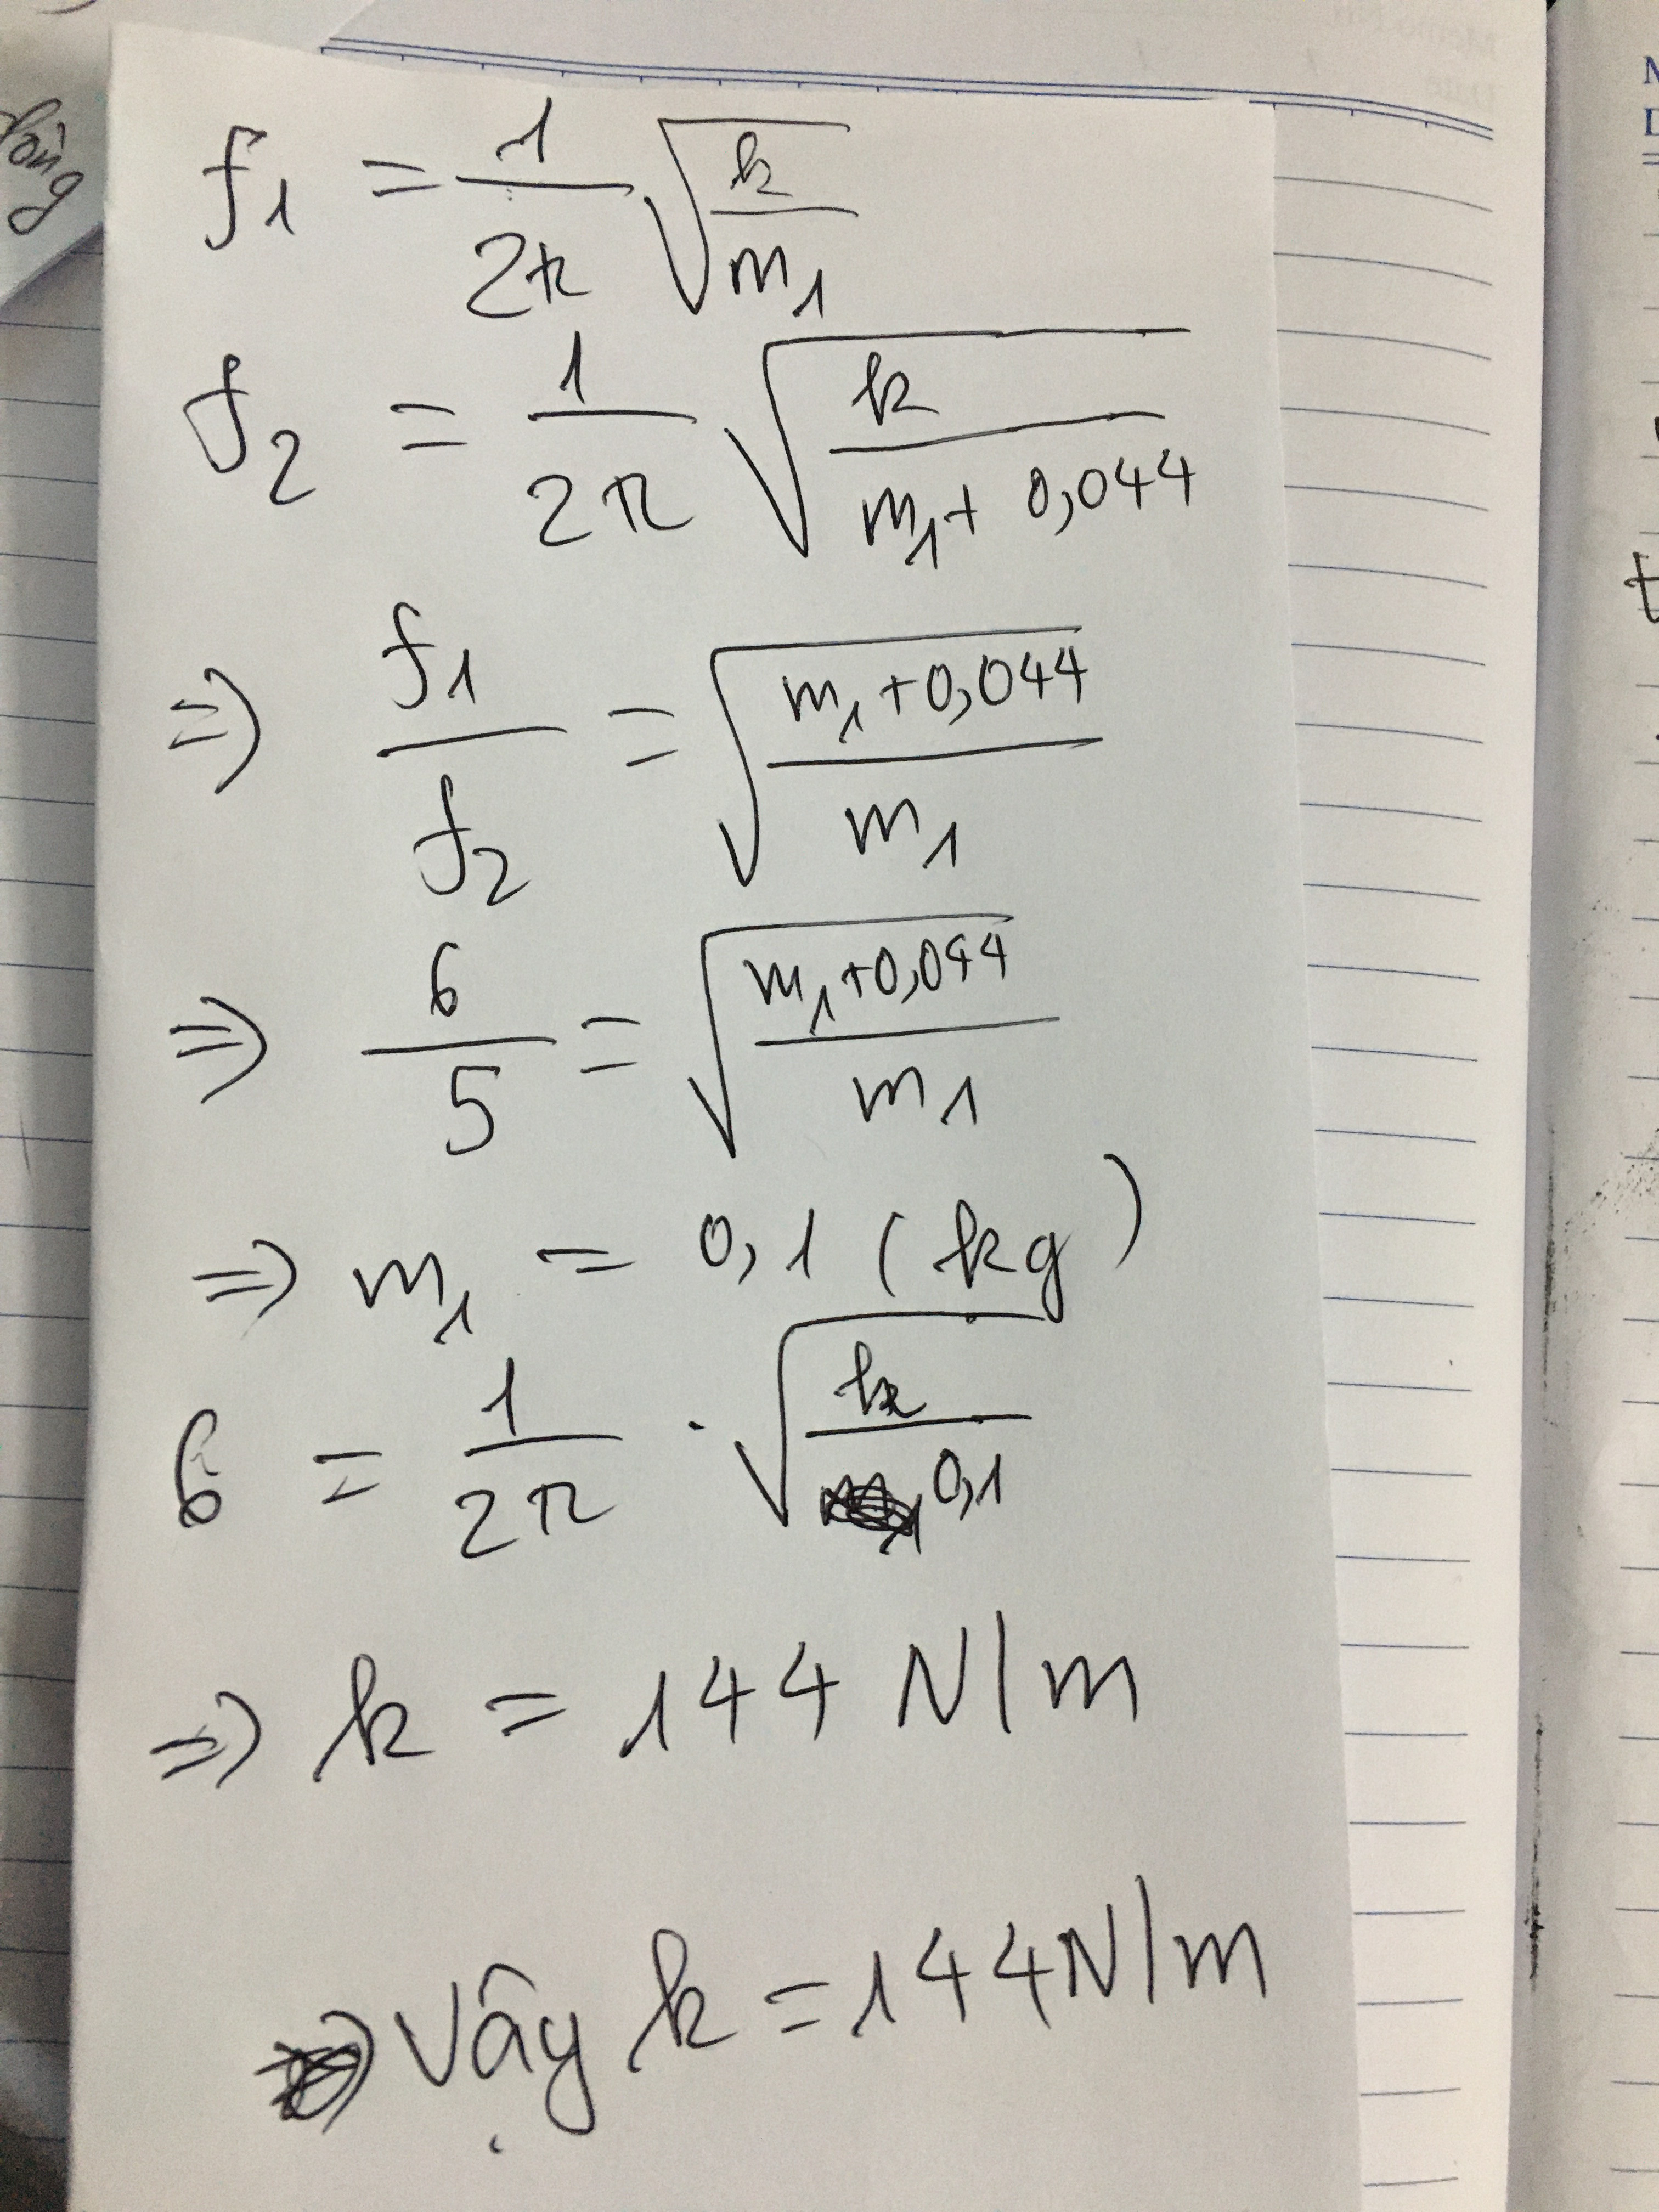 f₁ = 1/2π √(k/m₁)
f₂ = 1/2π √(k/(m₁ + 0,044))
⇒ f₁/f₂ = √((m₁ + 0,044)/m₁)
⇒ 6/5 = √((m₁ + 0,044)/m₁)
⇒ m₁ = 0,1 (kg)
6 = 1/2π · √(k/0,1)
⇒ k = 144 N/m
Vậy k = 144 N/m